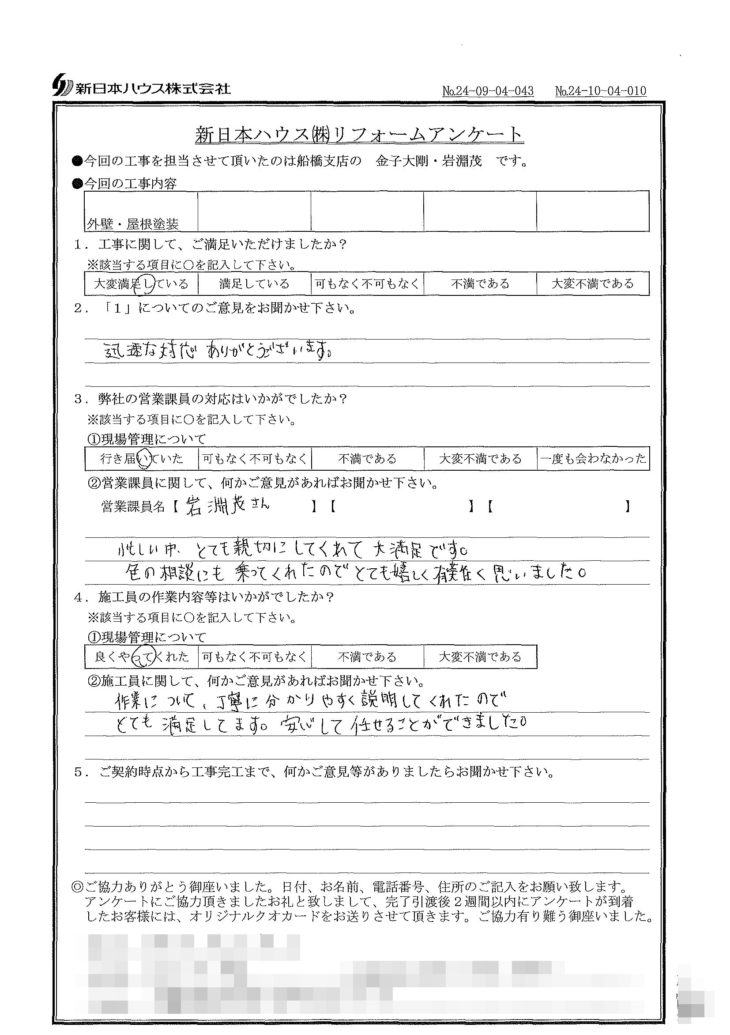 新日本ハウス株式会社
№24-09-04-043 №24-10-04-010
新日本ハウス㈱リフォームアンケート
●今回の工事を担当させて頂いたのは船橋支店の 金子大剛・岩淵茂 です。
●今回の工事内容
外壁・屋根塗装
1．工事に関して、ご満足いただけましたか？
※該当する項目に○を記入して下さい。
大変満足している 満足している 可もなく不可もなく 不満である 大変不満である
2．「1」についてのご意見をお聞かせ下さい。
迅速な対応ありがとうございます。
3．弊社の営業課員の対応はいかがでしたか？
※該当する項目に○を記入して下さい。
①現場管理について
行き届いていた 可もなく不可もなく 不満である 大変不満である 一度も会わなかった
②営業課員に関して、何かご意見があればお聞かせ下さい。
営業課員名【 岩淵茂さん 】【 】【 】
忙しい中、とても親切にしてくれて大満足です。
色の相談にも乗ってくれたのでとても嬉しく有難く思いました。
4．施工員の作業内容等はいかがでしたか？
※該当する項目に○を記入して下さい。
①現場管理について
良くやってくれた 可もなく不可もなく 不満である 大変不満である
②施工員に関して、何かご意見があればお聞かせ下さい。
作業について、丁寧に分かりやすく説明してくれたので
とても満足してます。安心して任せることができました。
5．ご契約時点から工事完工まで、何かご意見等がありましたらお聞かせ下さい。
◎ご協力ありがとう御座いました。日付、お名前、電話番号、住所のご記入をお願い致します。
アンケートにご協力頂きましたお礼と致しまして、完了引渡後２週間以内にアンケートが到着
したお客様には、オリジナルクオカードをお送りさせて頂きます。ご協力有り難う御座いました。